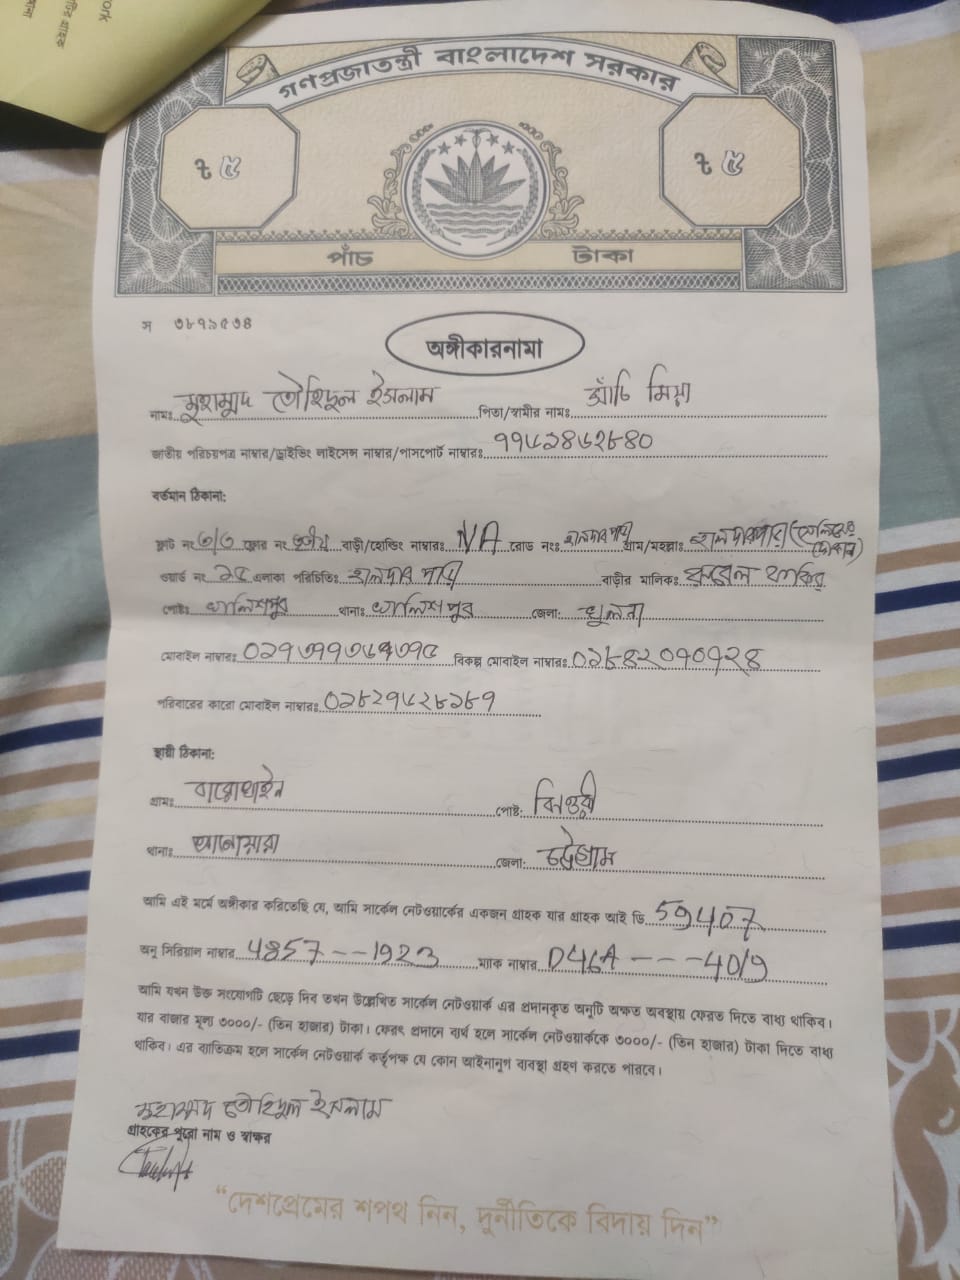 গণপ্রজাতন্ত্রী বাংলাদেশ সরকার
৳ ৫ ৳ ৫
পাঁচ টাকা
স ৩৮৭১৫৩৪
অঙ্গীকারনামা
নামঃ মুহাম্মদ তৌহিদুল ইসলাম পিতা/স্বামীর নামঃ মিয়া
জাতীয় পরিচয়পত্র নাম্বার/ড্রাইভিং লাইসেন্স নাম্বার/পাসপোর্ট নাম্বারঃ
বর্তমান ঠিকানা:
ফ্লাট নং ফ্লোর নং বাড়ী/হোল্ডিং নাম্বারঃ N/A রোড নংঃ হালদার পাড়া গ্রাম/মহল্লাঃ হালদারপাড়া
ওয়ার্ড নং ১৫ এলাকা পরিচিতিঃ হালদার পাড়া বাড়ীর মালিকঃ
পোষ্টঃ খালিশপুর থানাঃ খালিশপুর জেলা: খুলনা
মোবাইল নাম্বারঃ বিকল্প মোবাইল নাম্বারঃ
পরিবারের কারো মোবাইল নাম্বারঃ
স্থায়ী ঠিকানা:
গ্রামঃ পোষ্ট:
থানাঃ আনোয়ারা জেলা: চট্টগ্রাম
আমি এই মর্মে অঙ্গীকার করিতেছি যে, আমি সার্কেল নেটওয়ার্কের একজন গ্রাহক যার গ্রাহক আই ডি 59407
অনু সিরিয়াল নাম্বার 4857--1923 ম্যাক নাম্বার D46A---4019
আমি যখন উক্ত সংযোগটি ছেড়ে দিব তখন উল্লেখিত সার্কেল নেটওয়ার্ক এর প্রদানকৃত অনুটি অক্ষত অবস্থায় ফেরত দিতে বাধ্য থাকিব।
যার বাজার মূল্য ৩০০০/- (তিন হাজার) টাকা। ফেরৎ প্রদানে ব্যর্থ হলে সার্কেল নেটওয়ার্ককে ৩০০০/- (তিন হাজার) টাকা দিতে বাধ্য
থাকিব। এর ব্যতিক্রম হলে সার্কেল নেটওয়ার্ক কর্তৃপক্ষ যে কোন আইনানুগ ব্যবস্থা গ্রহণ করতে পারবে।
মুহাম্মদ তৌহিদুল ইসলাম
গ্রাহকের পুরো নাম ও স্বাক্ষর
“দেশপ্রেমের শপথ নিন, দুর্নীতিকে বিদায় দিন”